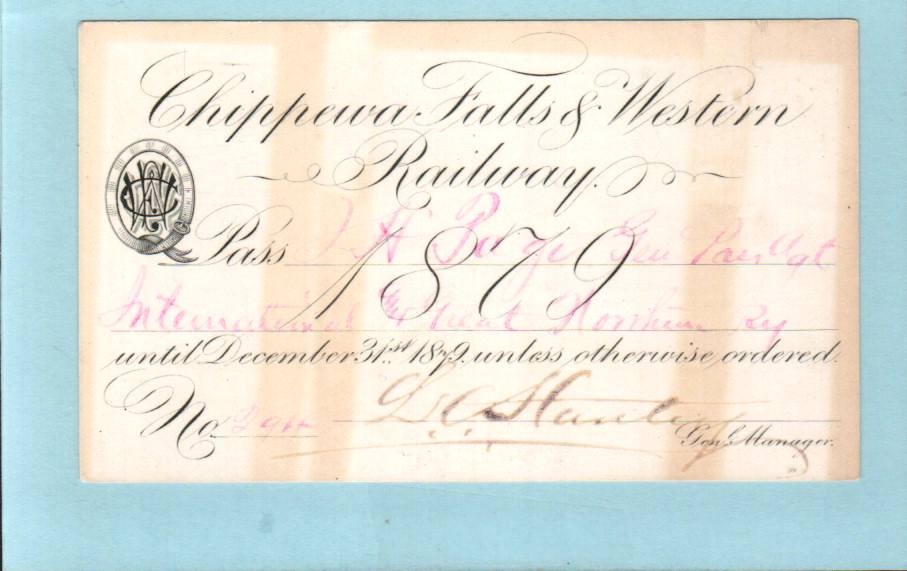 Chippewa Falls & Western
Railway.
Pass J H Page Gen Pass Agt
1879
International & Great Northern Ry
until December 31st 1879. unless otherwise ordered.
No
L. C. Stanley
Gen'l Manager.